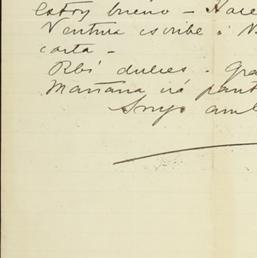 estoy bueno - Hace
Ventura escribe á N
carta -
Rbí dulces. Gra
Mañana irá pant
Suyo am